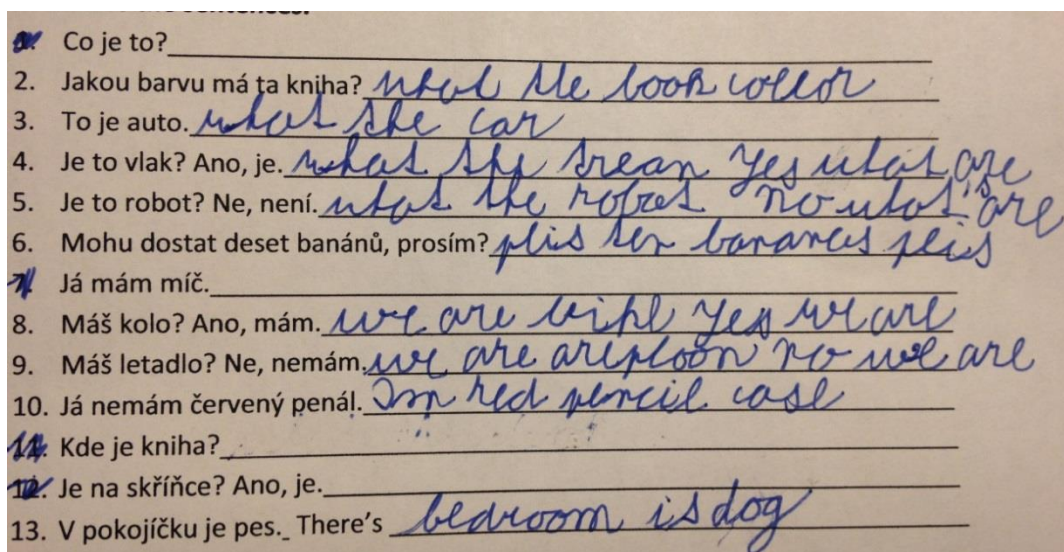 1. Co je to?
2. Jakou barvu má ta kniha? what the book collor
3. To je auto. what the car
4. Je to vlak? Ano, je. what the trean Yes what are
5. Je to robot? Ne, není. what the robot no what's are
6. Mohu dostat deset banánů, prosím? plis ten bananas plis
7. Já mám míč.
8. Máš kolo? Ano, mám. we are Yes we are
9. Máš letadlo? Ne, nemám. we are no we are
10. Já nemám červený penál. Im red pencil case
11. Kde je kniha?
12. Je na skříňce? Ano, je.
13. V pokojíčku je pes. There's bedroom is dog